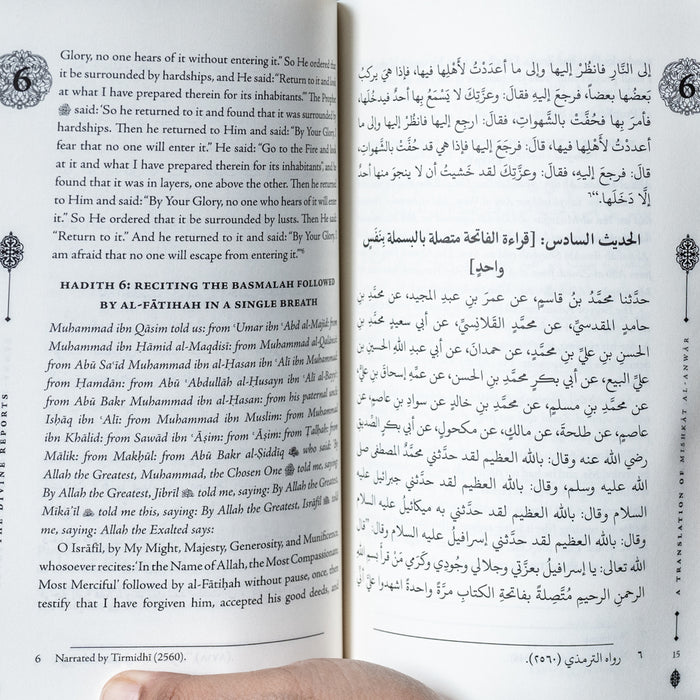 6
Glory, no one hears of it without entering it." So He ordered that
it be surrounded by hardships, and He said: "Return to it and look
at what I have prepared therein for its inhabitants." The Prophet
ﷺ said: 'So he returned to it and found that it was surrounded by
hardships. Then he returned to Him and said: "By Your Glory, I
fear that no one will enter it." He said: "Go to the Fire and look
at it and what I have prepared therein for its inhabitants", and he
found that it was in layers, one above the other. Then he returned
to Him and said: "By Your Glory, no one who hears of it will enter
it." So He ordered that it be surrounded by lusts. Then He said:
"Return to it." And he returned to it and said: "By Your Glory, I
am afraid that no one will escape from entering it."'6
HADITH 6: RECITING THE BASMALAH FOLLOWED
BY AL-FĀTIHAH IN A SINGLE BREATH
Muhammad ibn Qāsim told us: from ʿUmar ibn ʿAbd al-Majid: from
Muhammad ibn Ḥāmid al-Maqdisī: from Muhammad al-Qalānisī:
from Abū Saʿīd Muhammad ibn al-Hasan ibn ʿAlī ibn Muhammad:
from Ḥamdān: from Abū ʿAbdullāh al-Husayn ibn ʿAlī
from Abū Bakr Muhammad ibn al-Ḥasan: from his paternal uncle
Isḥāq ibn ʿAlī: from Muhammad ibn Muslim: from Muhammad
ibn Khālid: from Sawād ibn ʿĀṣim: from ʿĀṣim: from Talḥah: from
Mālik: from Makḥūl: from Abū Bakr al-Ṣiddīq who said: By
Allah the Greatest, Muhammad, the Chosen One ﷺ told me, saying:
By Allah the Greatest, Jibrīl told me, saying: By Allah the Greatest,
Mikāʾīl told me this, saying: By Allah the Greatest, Isrāfīl told
me, saying: Allah the Exalted says:
O Isrāfīl, by My Might, Majesty, Generosity, and Munificence,
whosoever recites: 'In the Name of Allah, the Most Compassionate,
Most Merciful' followed by al-Fātiḥah without pause, once, then
testify that I have forgiven him, accepted his good deeds, and
6 Narrated by Tirmidhī (2560).
THE DIVINE REPORTS
6
إلى النَّارِ فانظُرْ إليها وإلى ما أعدَدْتُ لأَهْلِها فيها، فإذا هيَ يركبُ
بَعضُها بعضاً، فرجعَ إليهِ فقالَ: وعزَّتِكَ لا يَسْمَعُ بها أحدٌ فيدخُلَها،
فأمرَ بها فحُفَّتْ بالشَّهواتِ، فقالَ: ارجِع إليها فانظُر إلى ما
أعددْتُ لأَهْلِها فيها، قالَ: فرجَعَ إليها فإذا هي قد حُفَّتْ بالشَّهواتِ،
قالَ: فرجعَ إليهِ، فقالَ: وعزَّتِكَ لقد خَشيتُ أن لا ينجوَ منها أحدٌ
إلَّا دَخَلَها.“٦
الحديث السادس: [قراءة الفاتحة متصلة بالبسملة بِنَفَسٍ
واحدٍ]
حدَّثنا محمَّدُ بنُ قاسمٍ، عن عمرَ بنِ عبدِ المجيدِ، عن محمَّدِ بنِ
حامدٍ المقدسيِّ، عن محمَّدٍ القَلانِسيِّ، عن أبي سعيدٍ محمَّدِ بنِ
الحسنِ بنِ عليِّ بنِ محمَّدٍ، عن حمدانَ، عن أبي عبدِ اللهِ الحسينِ بنِ
عليٍّ البيعِ، عن أبي بكرٍ محمَّدِ بنِ الحسنِ، عن عمِّهِ إسحاقَ بنِ عليٍّ،
عن محمَّدِ بنِ مسلمٍ، عن محمَّدِ بنِ خالدٍ عن سوادِ بنِ عاصمٍ، عن
عاصمٍ، عن طلحةَ، عن مالكٍ، عن مكحولٍ، عن أبي بكرٍ الصِّديقِ
رضي الله عنه وقال: بالله العظيم لقد حدَّثني محمَّدٌ المصطفى صلى
الله عليه وسلم، وقال: بالله العظيم لقد حدَّثني جبرائيل عليه
السلام وقال: بالله العظيم لقد حدَّثني به ميكائيلُ عليه السلام
وقال: بالله العظيم لقد حدَّثني إسرافيلُ عليه السلام وقال: ”قال
الله تعالى: يا إسرافيلُ بعزَّتي وجلالي وجُودِي وكَرَمِي مَنْ قرأَ بسم الله
الرحمنِ الرحيمِ مُتَّصِلةً بفاتحةِ الكتابِ مرَّةً واحدةً اشهدوا عليَّ أنِّي
٦ رواه الترمذي (٢٥٦٠).
A TRANSLATION OF MISHKĀT AL-ANWĀR
15